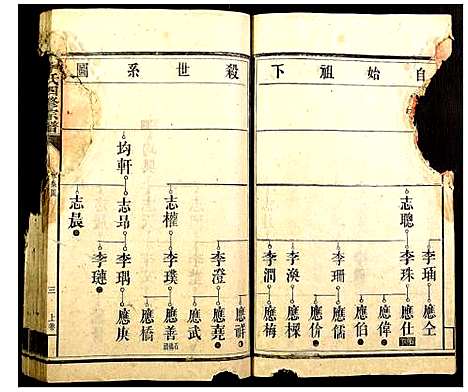 自始祖下殺世系圖
均軒
志聰
志權
志昂
志晨
李珠
李珊
李渙
李潤
李澄
李璞
李瑀
李璉
應仝
應仕
應偉
應伯
應儒
應价
應樑
應梅
應祥
應堯
應武
應善
應橋
應庚
氏四修宗譜
三
上卷